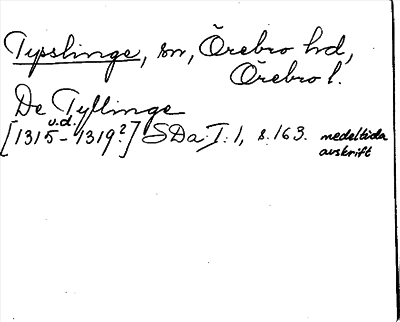 Tysslinge, sn, Örebro hd,
Örebro l.
De Tyllinge
u.d.
[1315-1319?] SDa: I: 1, s. 163. medeltida
avskrift